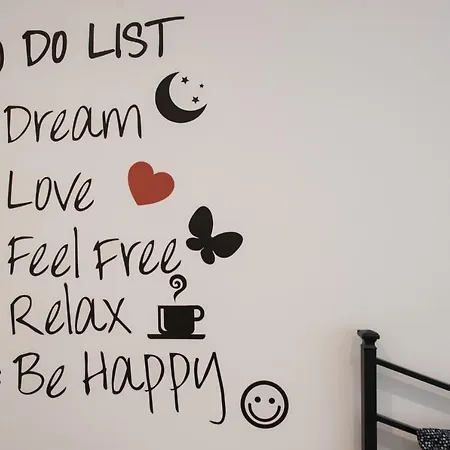 DO LIST
Dream
Love
Feel Free
Relax
Be Happy